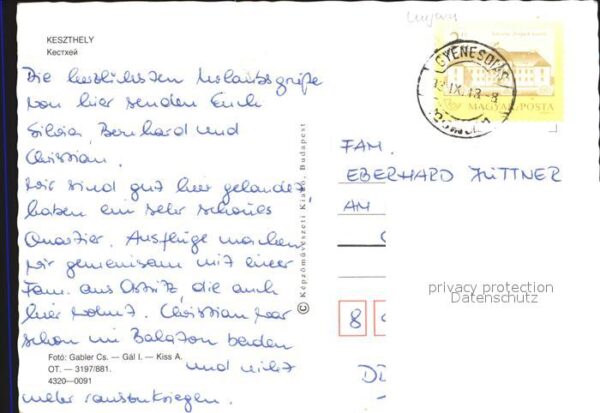 Ungarn
KESZTHELY
Кестхей
Die herzlichsten Urlaubsgrüße
von hier senden Euch
Silvia, Bernhard und
Christian.
Wir sind gut hier gelandet,
haben ein sehr schönes
Quartier. Ausflüge machen
wir gemeinsam mit einer
Fam. aus Ostritz die auch
hier wohnt. Christian war
schon im Balaton baden
und nicht
mehr rauszukriegen.
Fotó: Gabler Cs. — Gál I. — Kiss A.
OT. — 3197/881.
4320—0091
© Képzőművészeti Kiadó, Budapest
GYENESDIÁS
MAGYAR POSTA
FAM.
EBERHARD JÜTTNER
AM
8
privacy protection
Datenschutz